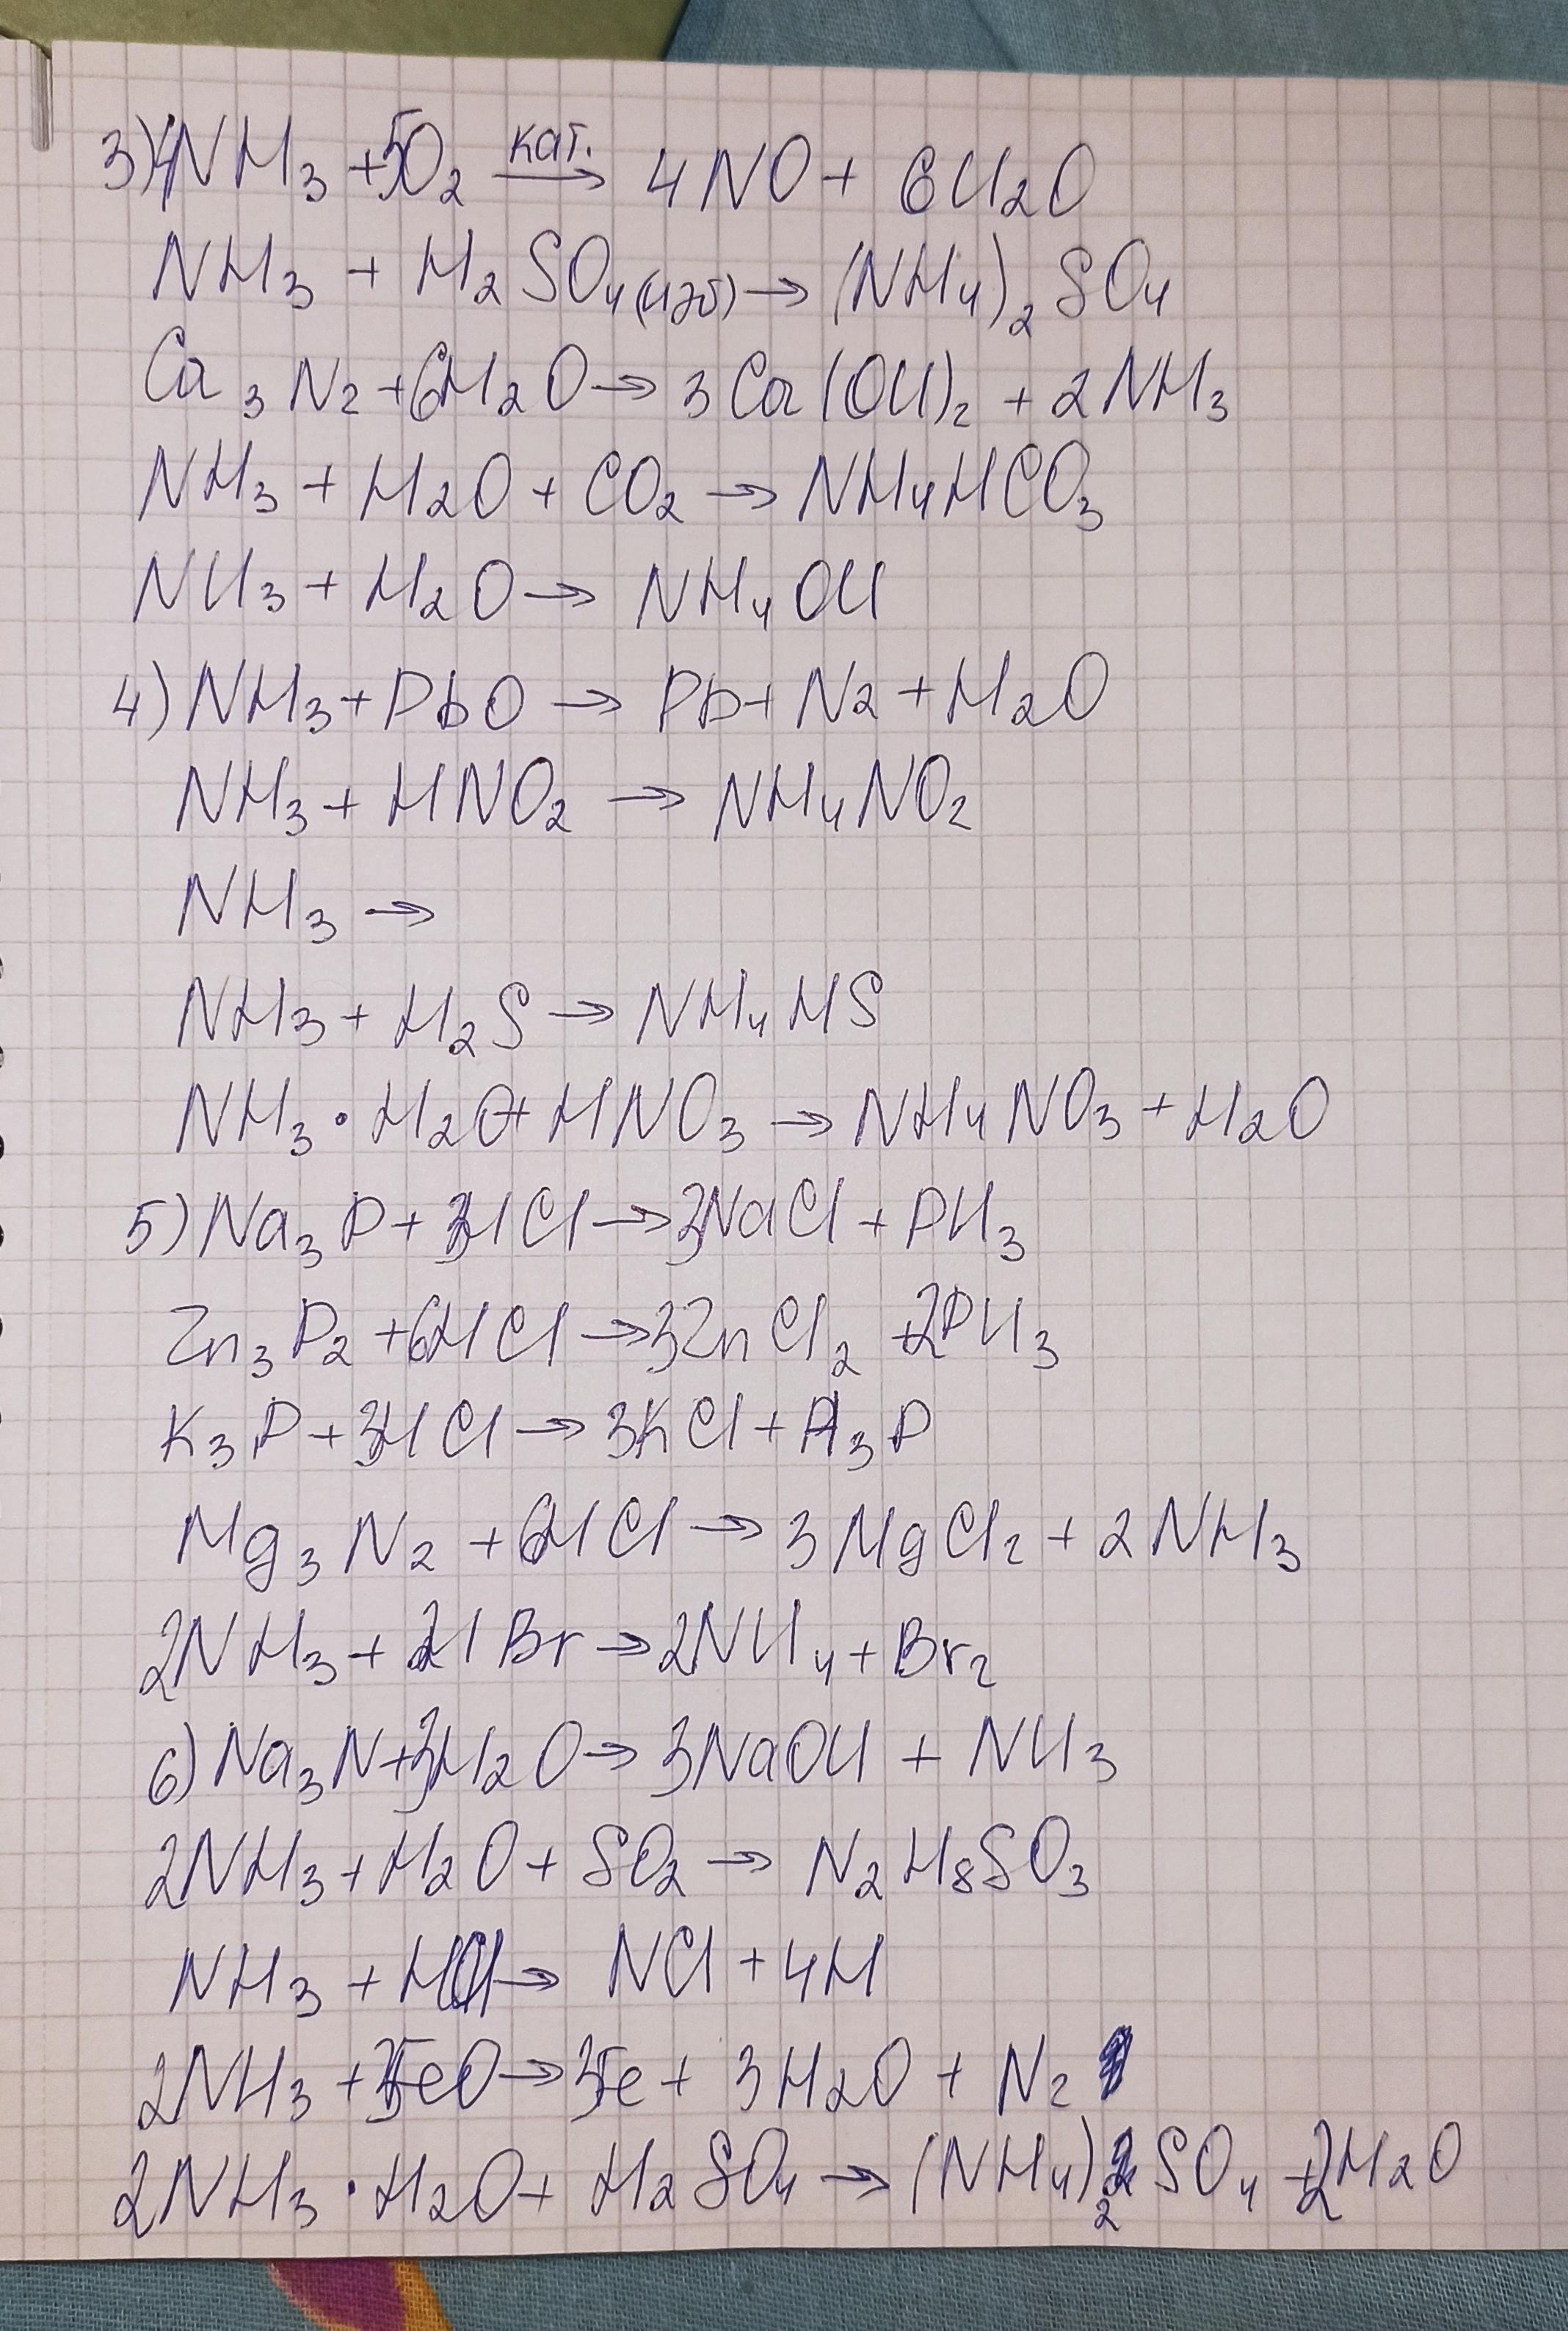 3) 4NH₃ + 5O₂ кат. → 4NO + 6H₂O
NH₃ + H₂SO₄(изб) → (NH₄)₂SO₄
Ca₃N₂ + 6H₂O → 3Ca(OH)₂ + 2NH₃
NH₃ + H₂O + CO₂ → NH₄HCO₃
NH₃ + H₂O → NH₄OH
4) NH₃ + PbO → Pb + N₂ + H₂O
NH₃ + HNO₂ → NH₄NO₂
NH₃ →
NH₃ + H₂S → NH₄HS
NH₃ · H₂O + HNO₃ → NH₄NO₃ + H₂O
5) Na₃P + 3HCl → 3NaCl + PH₃
Zn₃P₂ + 6HCl → 3ZnCl₂ + 2PH₃
K₃P + 3HCl → 3KCl + H₃P
Mg₃N₂ + 6HCl → 3MgCl₂ + 2NH₃
2NH₃ + 2HBr → 2NH₄ + Br₂
6) Na₃N + 3H₂O → 3NaOH + NH₃
2NH₃ + H₂O + SO₂ → N₂H₈SO₃
NH₃ + HCl → NCl + 4H
2NH₃ + 3FeO → 3Fe + 3H₂O + N₂
2NH₃ · H₂O + H₂SO₄ → (NH₄)₂SO₄ + 2H₂O